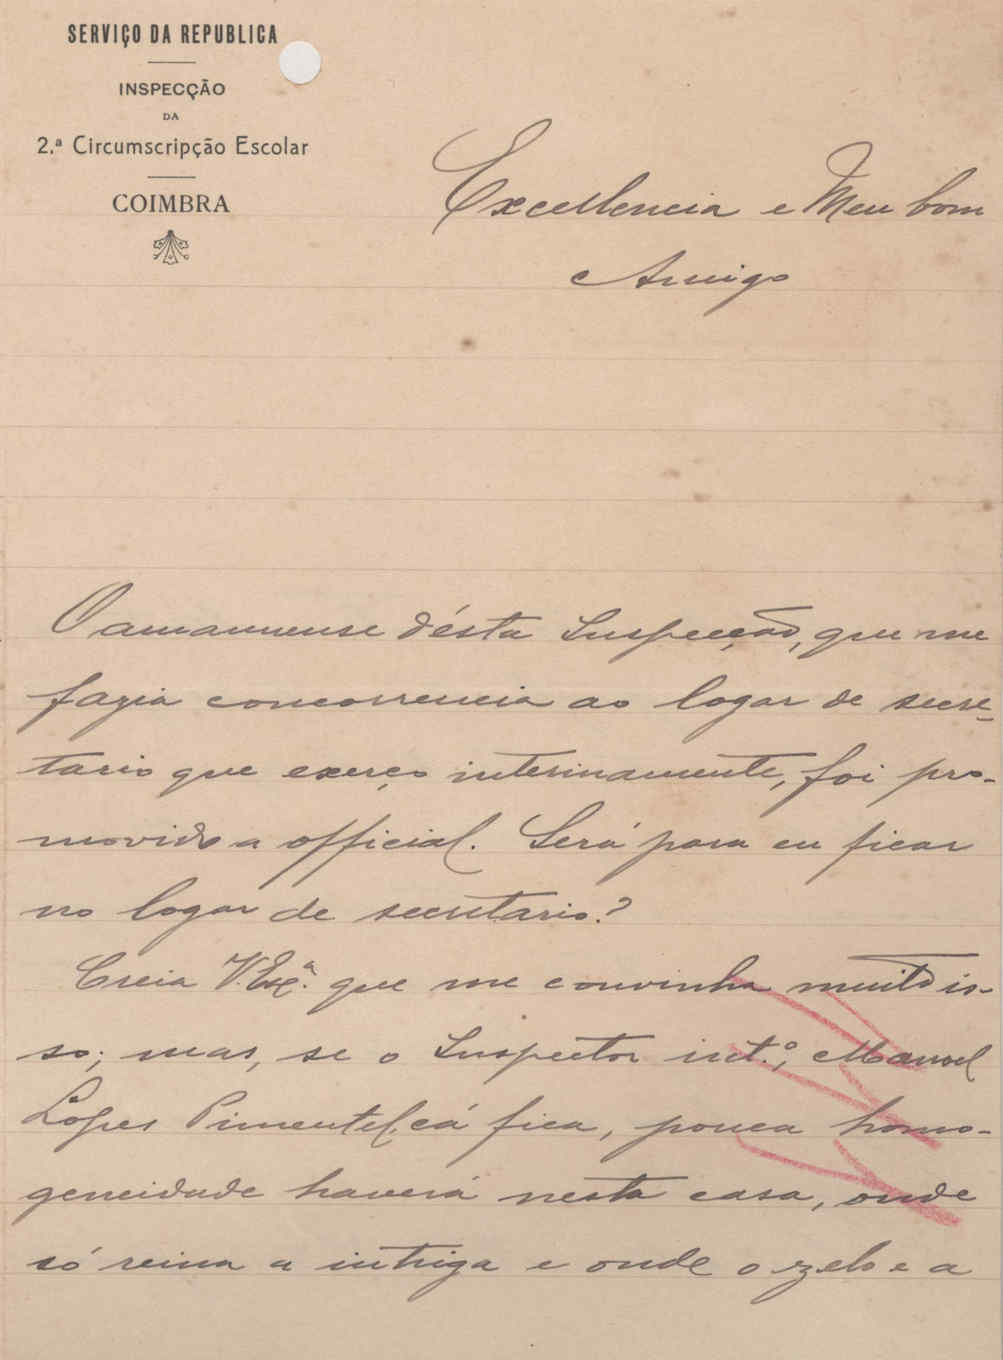 SERVIÇO DA REPUBLICA
INSPECÇÃO
DA
2.ª Circumscripção Escolar
COIMBRA
Excellencia e Meu bom
Amigo
O amanuense d'ésta Inspecção, que me
fazia concorrencia ao logar de secre-
tario que exerço interinamente, foi pro-
movido a official. Será para eu ficar
no logar de secretario?
Creia V. Exª. que me convinha muito is-
so; mas, se o Inspector int.º, Manoel
Lopes Pimentel, cá fica, pouca homo-
geneidade haverá nesta casa, onde
só reina a intriga e onde o zelo e a